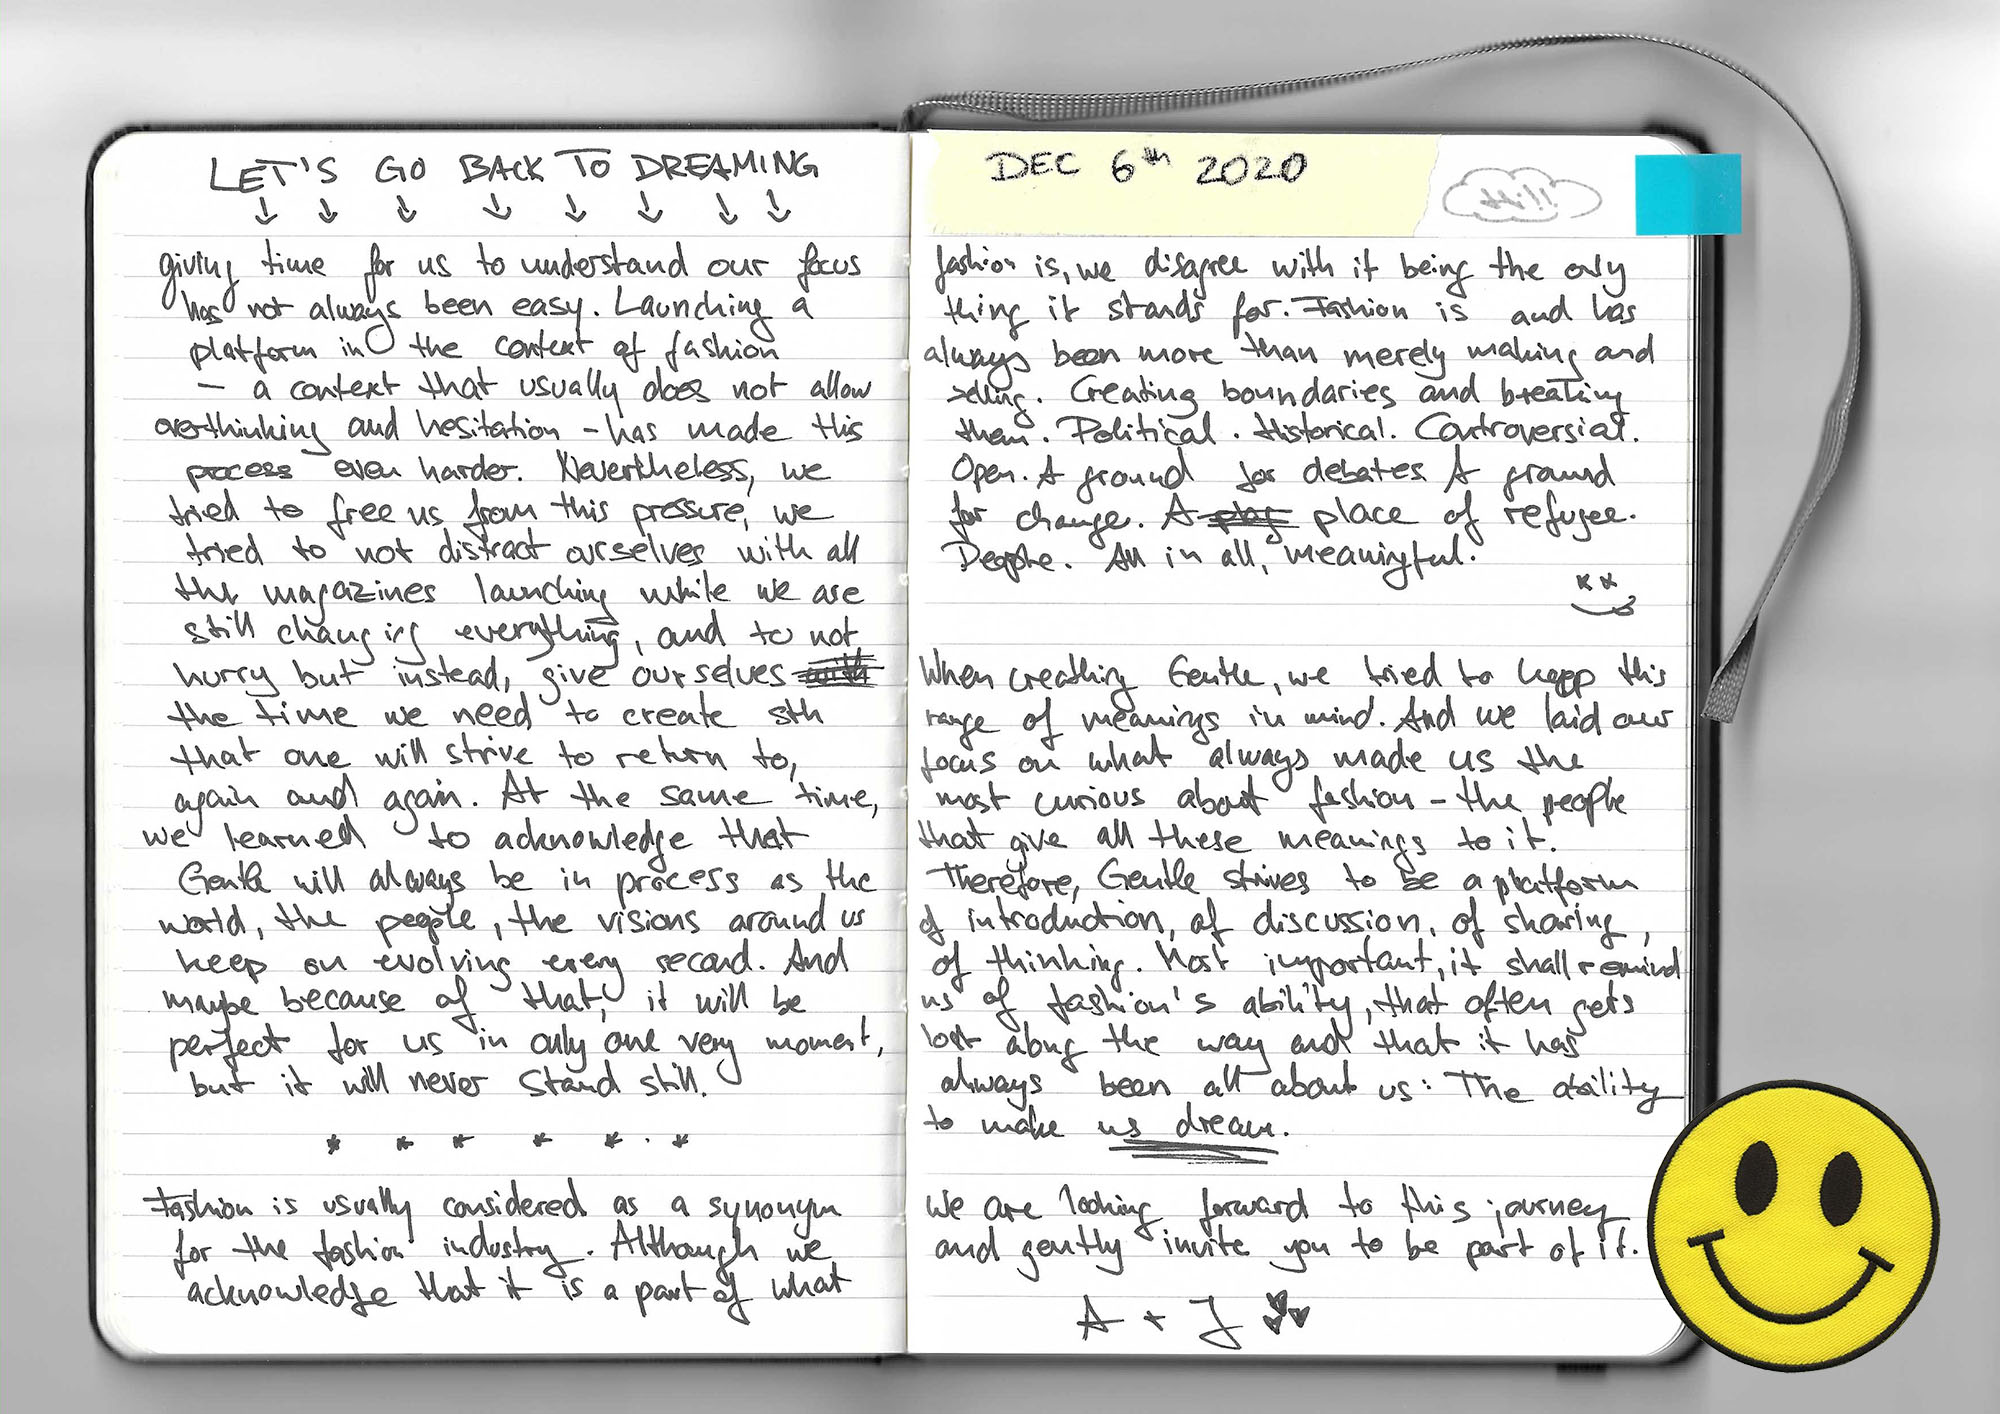 LET'S GO BACK TO DREAMING
giving time for us to understand our focus
has not always been easy. Launching a
platform in the context of fashion
– a context that usually does not allow
overthinking and hesitation – has made this
process even harder. Nevertheless, we
tried to free us from this pressure, we
tried to not distract ourselves with all
the magazines launching while we are
still changing everything, and to not
hurry but instead, give ourselves with
the time we need to create sth
that one will strive to return to,
again and again. At the same time,
we learned to acknowledge that
Gentle will always be in process as the
world, the people, the visions around us
keep on evolving every second. And
maybe because of that, it will be
perfect for us in only one very moment,
but it will never stand still.
* * * * * . *
Fashion is usually considered as a synonym
for the fashion industry. Although we
acknowledge that it is a part of what
DEC 6th 2020
Hi!!
fashion is, we disagree with it being the only
thing it stands for. Fashion is and has
always been more than merely making and
selling. Creating boundaries and breaking
them. Political. Historical. Controversial.
Open. A ground for debates. A ground
for change. A play place of refugee.
People. All in all, meaningful.
When creathing Gentle, we tried to kepp this
range of meanings in mind. And we laid our
focus on what always made us the
most curious about fashion – the people
that give all these meanings to it.
Therefore, Gentle strives to be a platform
of introduction, of discussion, of sharing,
of thinking. Most important, it shall remind
us of fashion's ability, that often gets
lost along the way and that it has
always been all about us: The ability
to make us dream.
We are looking forward to this journey
and gently invite you to be part of it.
A + J